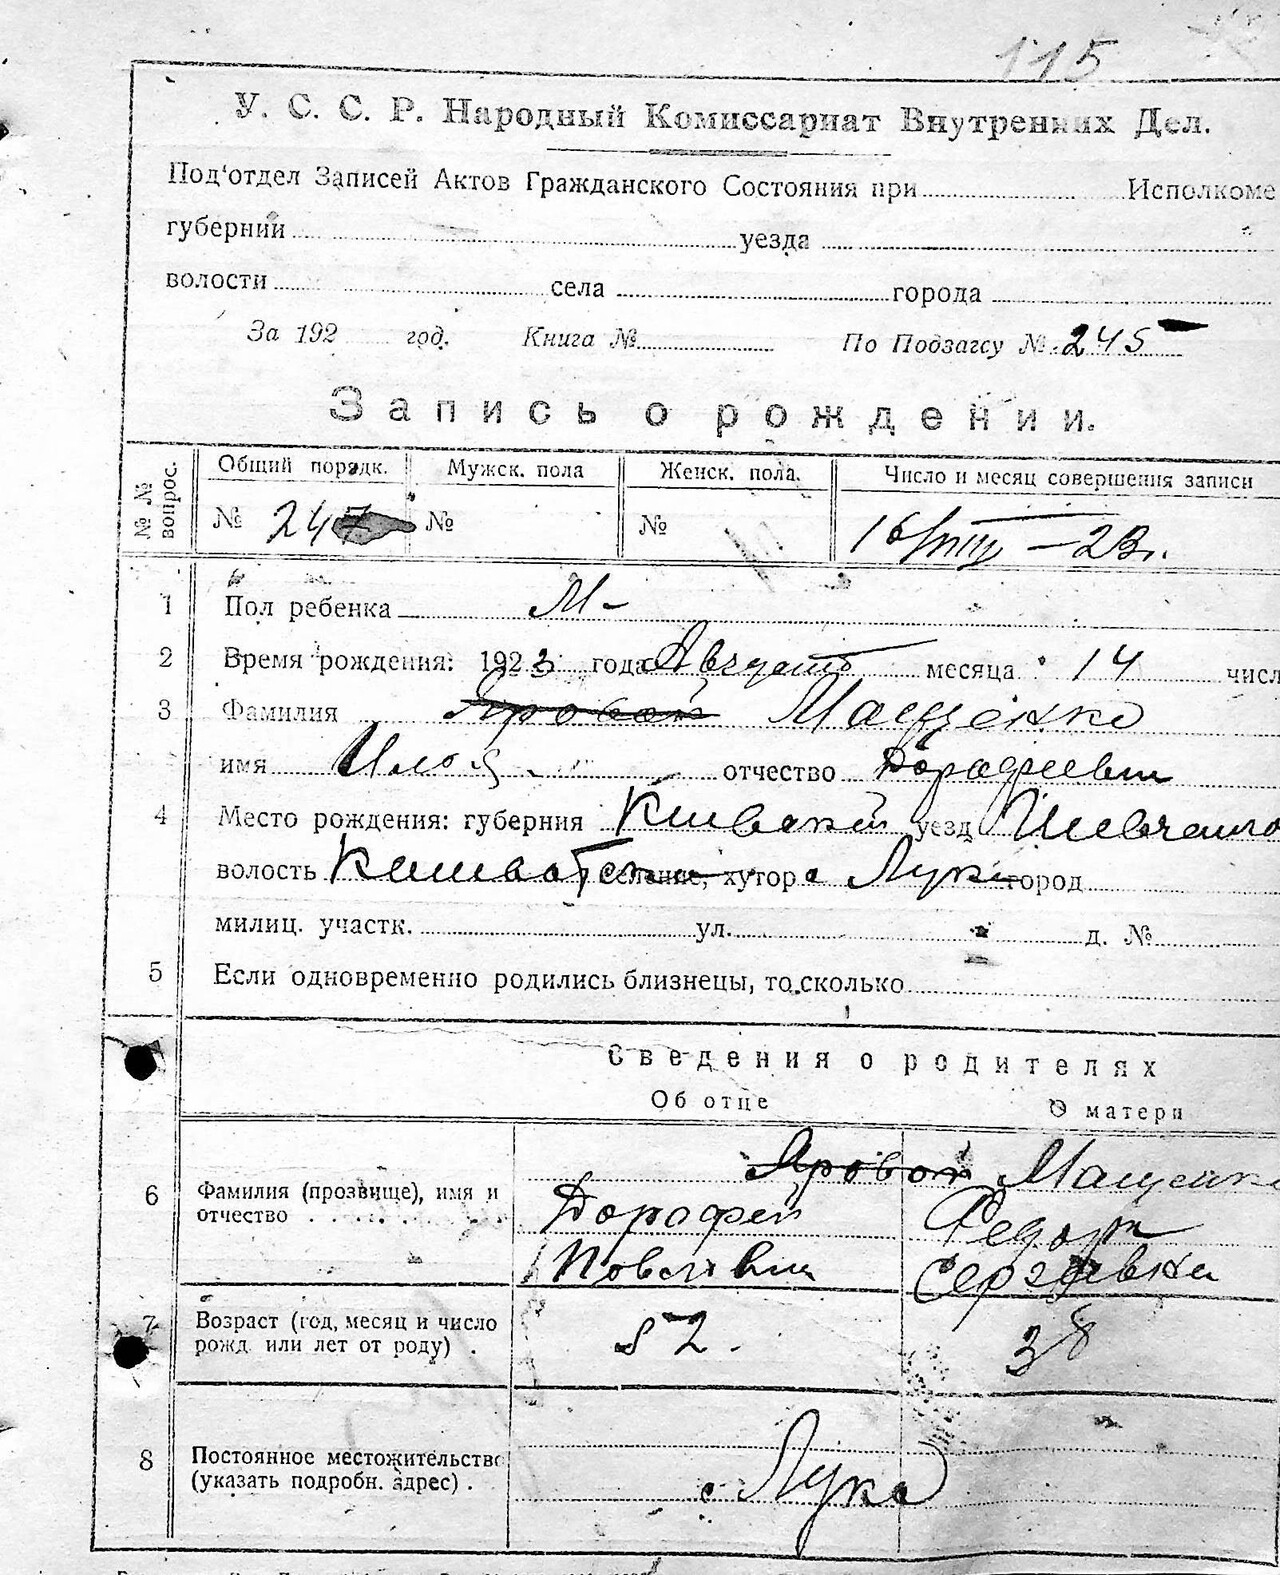 115
У. С. С. Р. Народный Комиссариат Внутренних Дел.
Под'отдел Записей Актов Гражданского Состояния при Исполкоме
губернии уезда
волости села города
За 192 год. Книга № По Подзагсу № 245
Запись о рождении.
№ № вопрос. Общий порядк. Мужск. пола Женск. пола. Число и месяц совершения записи
№ 247 № № 16/VIII – 23г.
1 Пол ребенка М-
2 Время рождения: 1923 года Август месяца 14 числ
3 Фамилия Яровой Мащенко
имя Илья отчество Дорофеевич
4 Место рождения: губерния Киевской уезд Шевченко
волость селение, хутор с Лука город
милиц. участк. ул. д. №
5 Если одновременно родились близнецы, то сколько
Сведения о родителях
Об отце О матери
Яровой Мащенко
6 Фамилия (прозвище), имя и Дорофей Федора
отчество Сергеевна
7 Возраст (год, месяц и число 52. 38
рожд. или лет от роду) .
8 Постоянное местожительство
(указать подробн. адрес) . с Лука